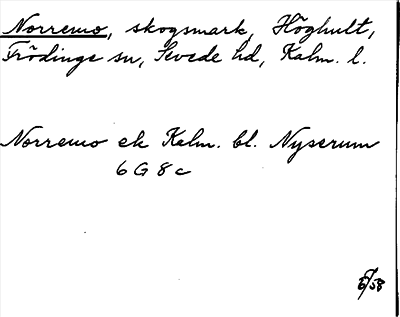 Norremo, skogsmark, Höghult,
Frödinge sn, Sevede hd, Kalm. l.
Norremo ek Kalm. bl. Nyserum
6 G 8 c
6/58